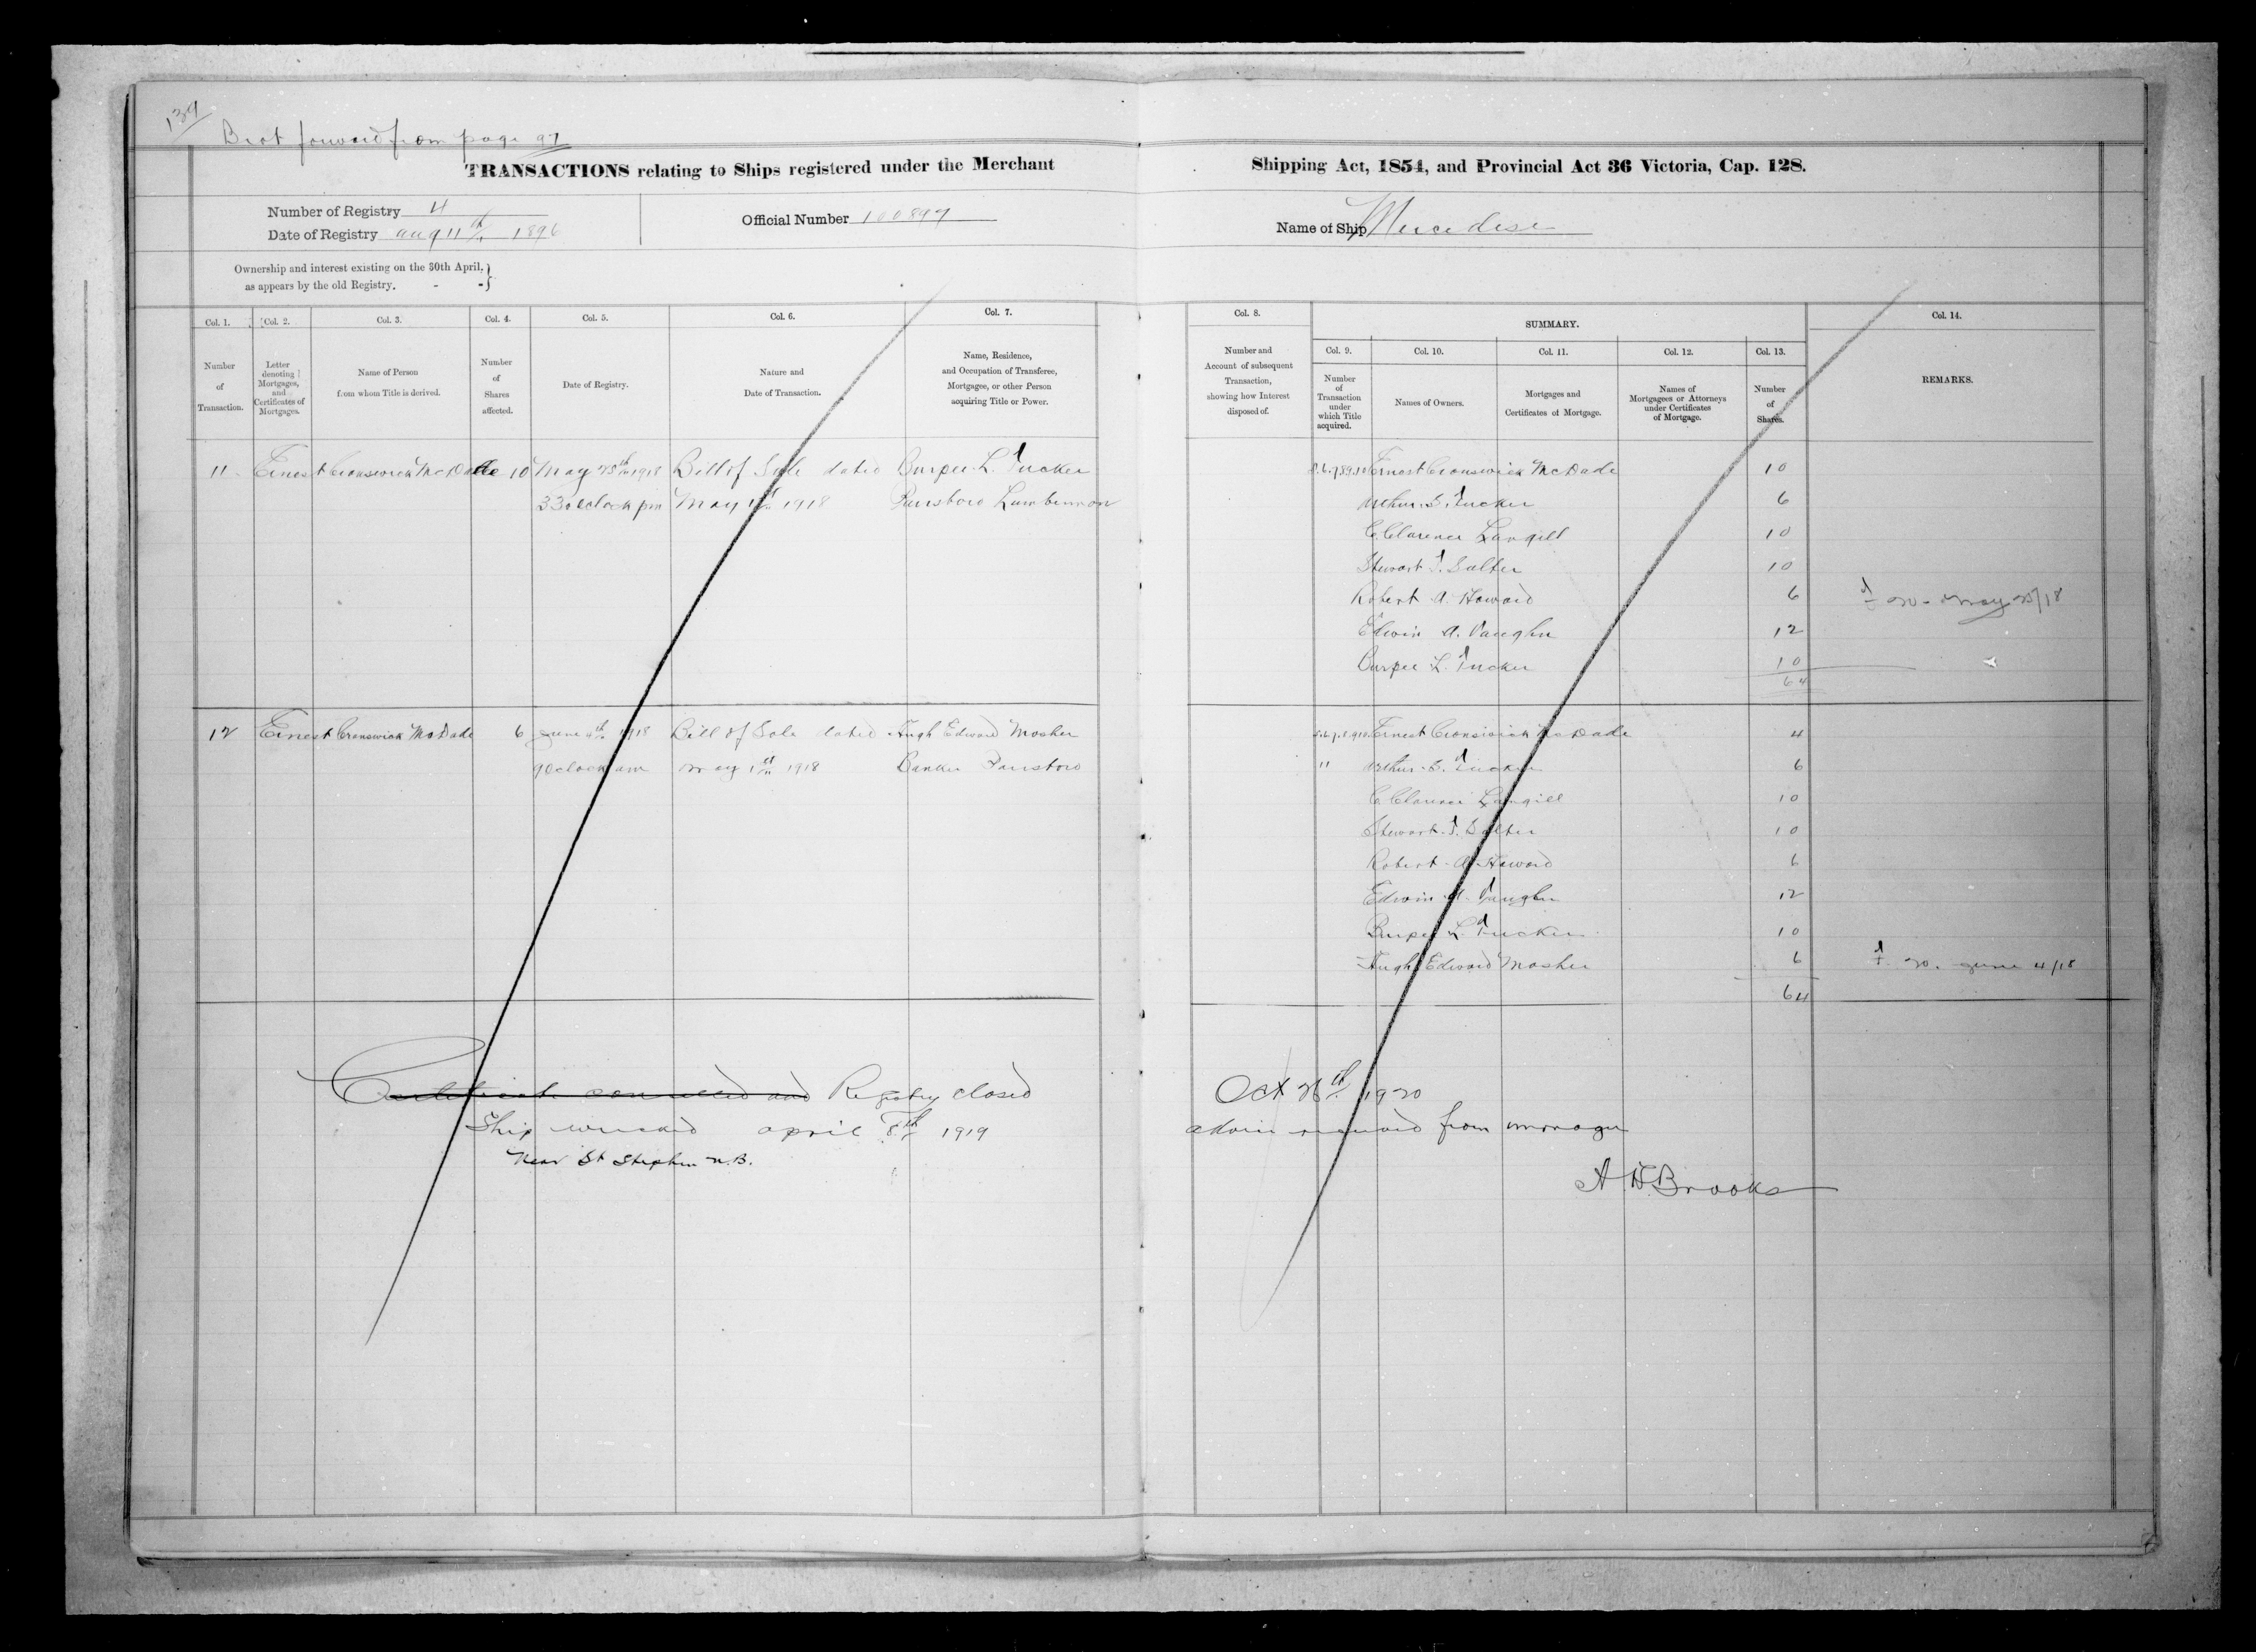 134
Brot forward from page 97
TRANSACTIONS relating to Ships registered under the Merchant Shipping Act, 1854, and Provincial Act 36 Victoria, Cap. 128.
Number of Registry 4
Date of Registry Aug 11th 1896
Official Number 100897
Name of Ship
Ownership and interest existing on the 30th April, as appears by the old Registry. - -
Col. 1. Number of Transaction.
Col. 2. Letter denoting Mortgages, and Certificates of Mortgages.
Col. 3. Name of Person from whom Title is derived.
Col. 4. Number of Shares affected.
Col. 5. Date of Registry.
Col. 6. Nature and Date of Transaction.
Col. 7. Name, Residence, and Occupation of Transferee, Mortgagee, or other Person acquiring Title or Power.
Col. 8. Number and Account of subsequent Transaction, showing how Interest disposed of.
SUMMARY.
Col. 9. Number of Transaction under which Title acquired.
Col. 10. Names of Owners.
Col. 11. Mortgages and Certificates of Mortgage.
Col. 12. Names of Mortgagees or Attorneys under Certificates of Mortgage.
Col. 13. Number of Shares.
Col. 14. REMARKS.
11 Ernest Cronswick McDade 10 May 25th 1918 Bill of Sale dated Burpee L. Tucker
3 30 oclock pm May 1st 1918 Parrsboro Lumberman
Ernest Cronswick McDade 10
Arthur S. Tucker 6
C. Clarence Langill 10
Stewart T. Salter 10
Robert A. Howard 6
May 25/18
Edwin A. Vaughn 12
Burpee L. Tucker 10
64
12 Ernest Cronswick McDade 6 June 4th 1918 Bill of Sale dated Hugh Edward Mosher
9 Oclock am May 1st 1918 Banker Parrsboro
Ernest Cronswick McDade 4
11 Arthur S. Tucker 6
C. Clarence Langill 10
Stewart T. Salter 10
Robert A. Howard 6
Edwin A. Vaughn 12
Burpee L. Tucker 10
Hugh Edward Mosher 6
June 4/18
64
Certificate cancelled and Registry closed Oct 26th 1920
Ship wrecked April 8th 1919 advice received from manager
Near St Stephen N.B.
A H Brooks